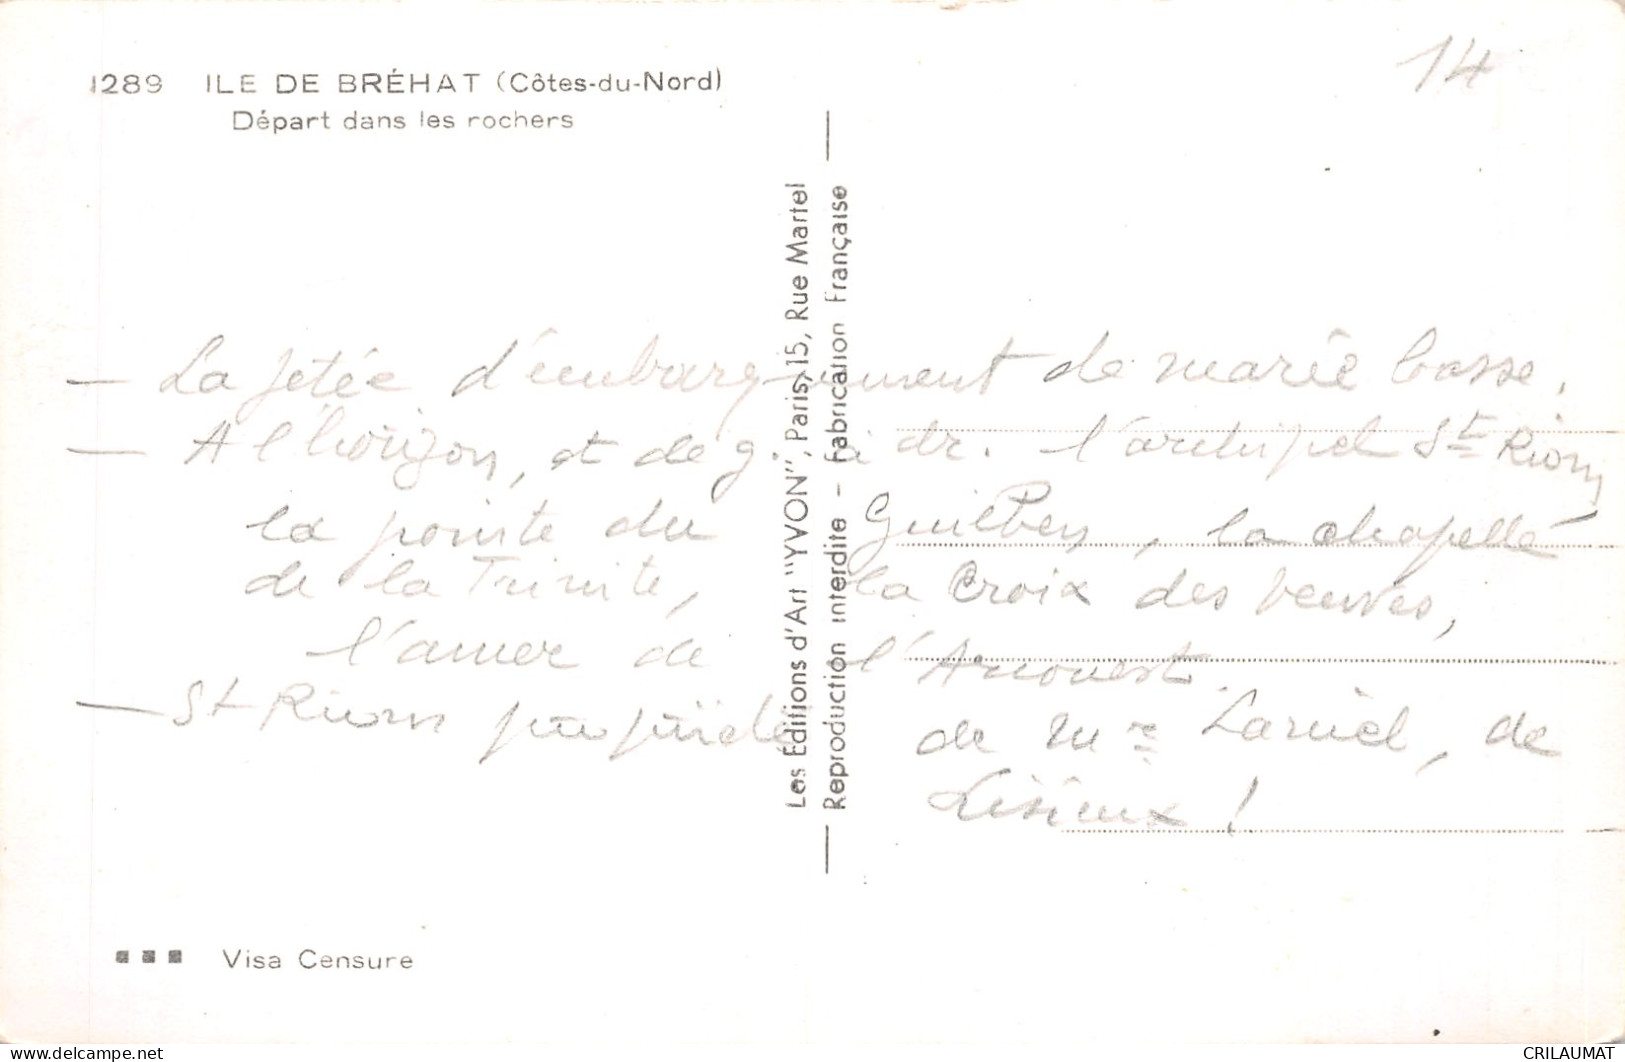 1289 ILE DE BRÉHAT (Côtes-du-Nord)
Départ dans les rochers
14
— La jetée d'embarquement de marée basse.
— A l'horizon, et de g. à dr. l'archipel St Riom,
la pointe du Guilben, la chapelle
de la Trinité, la Croix des Veuves,
l'amer de l'Arcouest.
— St Riom propriété de Mme Laniel, de
Lisieux !
Les Éditions d'Art "YVON", Paris, 15, Rue Martel
Reproduction interdite - Fabrication Française
Visa Censure
CRILAUMAT